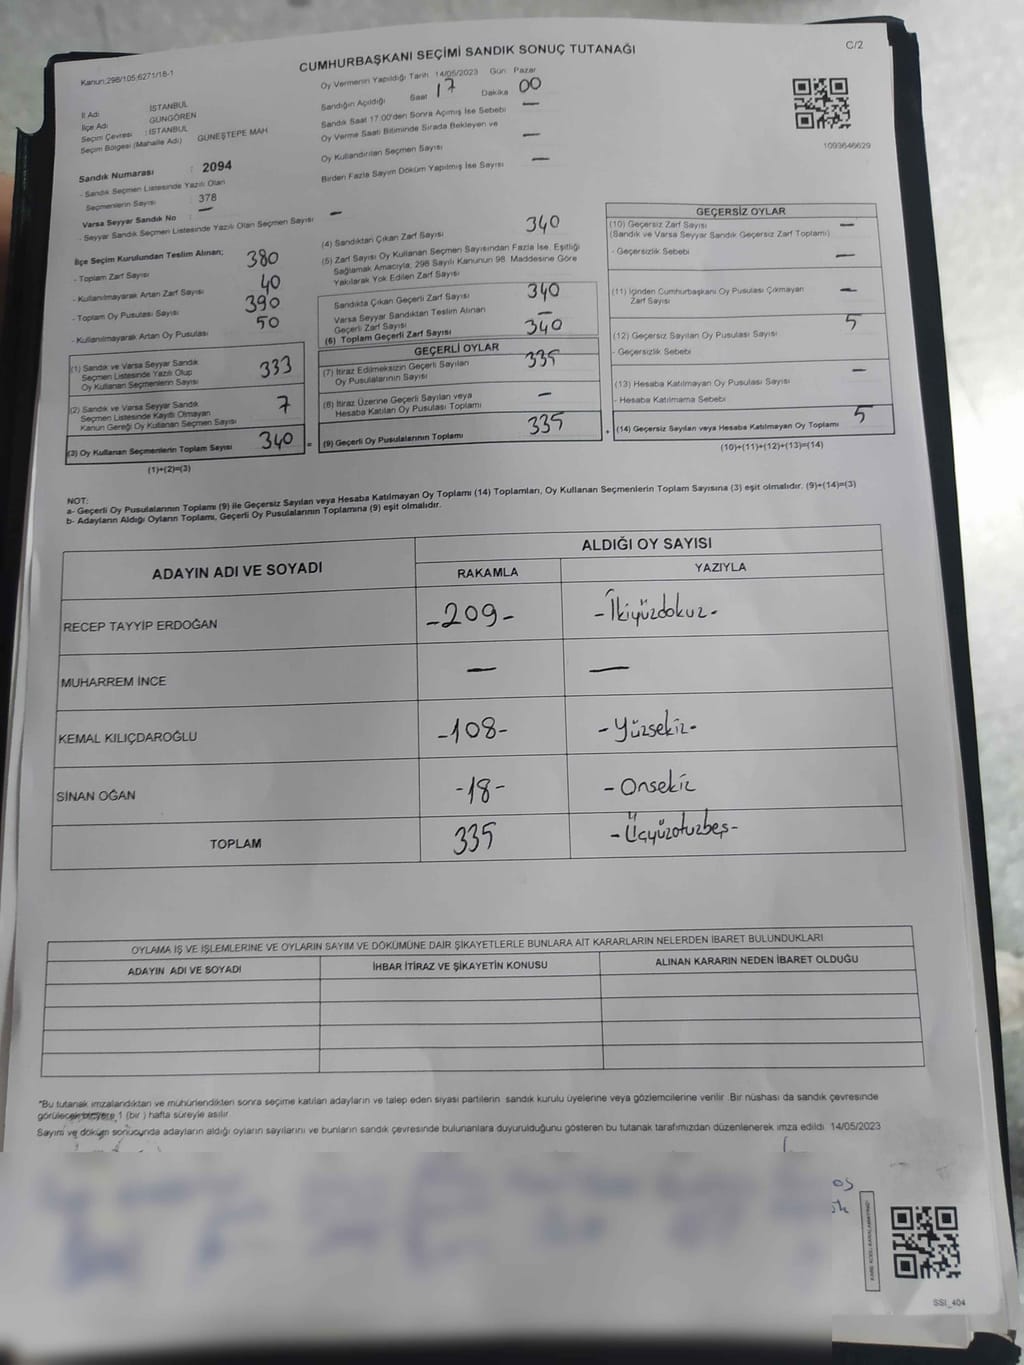 Kanun:298/105;6271/18-1
CUMHURBAŞKANI SEÇİMİ SANDIK SONUÇ TUTANAĞI
C/2
Oy Vermenin Yapıldığı Tarih 14/05/2023 Gün: Pazar
Sandığın Açıldığı Saat 17 Dakika 00
Sandık Saat 17.00'den Sonra Açılmış İse Sebebi —
Oy Verme Saati Bitiminde Sırada Bekleyen ve
Oy Kullandırılan Seçmen Sayısı —
Birden Fazla Sayım Döküm Yapılmış İse Sayısı —
1093646629
İl Adı : İSTANBUL
İlçe Adı GÜNGÖREN
Seçim Çevresi : İSTANBUL
Seçim Bölgesi (Mahalle Adı) GÜNEŞTEPE MAH
Sandık Numarası : 2094
- Sandık Seçmen Listesinde Yazılı Olan
Seçmenlerin Sayısı : 378
Varsa Seyyar Sandık No : —
- Seyyar Sandık Seçmen Listesinde Yazılı Olan Seçmen Sayısı —
İlçe Seçim Kurulundan Teslim Alınan;
- Toplam Zarf Sayısı 380
- Kullanılmayarak Artan Zarf Sayısı 40
- Toplam Oy Pusulası Sayısı 390
- Kullanılmayarak Artan Oy Pusulası 50
(1) Sandık ve Varsa Seyyar Sandık
Seçmen Listesinde Yazılı Olup
Oy Kullanan Seçmenlerin Sayısı 333
(2) Sandık ve Varsa Seyyar Sandık
Seçmen Listesinde Kayıtlı Olmayan
Kanun Gereği Oy Kullanan Seçmen Sayısı 7
(3) Oy Kullanan Seçmenlerin Toplam Sayısı 340
(1)+(2)=(3)
(4) Sandıktan Çıkan Zarf Sayısı 340
(5) Zarf Sayısı Oy Kullanan Seçmen Sayısından Fazla İse, Eşitliği
Sağlamak Amacıyla; 298 Sayılı Kanunun 98. Maddesine Göre
Yakılarak Yok Edilen Zarf Sayısı
Sandıkta Çıkan Geçerli Zarf Sayısı 340
Varsa Seyyar Sandıktan Teslim Alınan
Geçerli Zarf Sayısı —
(6) Toplam Geçerli Zarf Sayısı 340
GEÇERLİ OYLAR
(7) İtiraz Edilmeksizin Geçerli Sayılan
Oy Pusulalarının Sayısı 335
(8) İtiraz Üzerine Geçerli Sayılan veya
Hesaba Katılan Oy Pusulası Toplamı —
= (9) Geçerli Oy Pusulalarının Toplamı 335
GEÇERSİZ OYLAR
(10) Geçersiz Zarf Sayısı —
(Sandık ve Varsa Seyyar Sandık Geçersiz Zarf Toplamı)
- Geçersizlik Sebebi —
(11) İçinden Cumhurbaşkanı Oy Pusulası Çıkmayan
Zarf Sayısı —
(12) Geçersiz Sayılan Oy Pusulası Sayısı 5
- Geçersizlik Sebebi
(13) Hesaba Katılmayan Oy Pusulası Sayısı —
- Hesaba Katılmama Sebebi
+ (14) Geçersiz Sayılan veya Hesaba Katılmayan Oy Toplamı 5
(10)+(11)+(12)+(13)=(14)
NOT:
a- Geçerli Oy Pusulalarının Toplamı (9) ile Geçersiz Sayılan veya Hesaba Katılmayan Oy Toplamı (14) Toplamları, Oy Kullanan Seçmenlerin Toplam Sayısına (3) eşit olmalıdır. (9)+(14)=(3)
b- Adayların Aldığı Oyların Toplamı, Geçerli Oy Pusulalarının Toplamına (9) eşit olmalıdır.
ADAYIN ADI VE SOYADI ALDIĞI OY SAYISI
RAKAMLA YAZIYLA
RECEP TAYYİP ERDOĞAN -209- -İkiyüzdokuz-
MUHARREM İNCE — —
KEMAL KILIÇDAROĞLU -108- -Yüzsekiz-
SİNAN OĞAN -18- -Onsekiz
TOPLAM 335 -Üçyüzotuzbeş-
OYLAMA İŞ VE İŞLEMLERİNE VE OYLARIN SAYIM VE DÖKÜMÜNE DAİR ŞİKAYETLERLE BUNLARA AİT KARARLARIN NELERDEN İBARET BULUNDUKLARI
ADAYIN ADI VE SOYADI İHBAR İTİRAZ VE ŞİKAYETİN KONUSU ALINAN KARARIN NEDEN İBARET OLDUĞU
*Bu tutanak imzalandıktan ve mühürlendikten sonra seçime katılan adayların ve talep eden siyasi partilerin sandık kurulu üyelerine veya gözlemcilerine verilir. Bir nüshası da sandık çevresinde
görülecek bir yere 1 (bir ) hafta süreyle asılır.
Sayım ve döküm sonucunda adayların aldığı oyların sayılarını ve bunların sandık çevresinde bulunanlara duyurulduğunu gösteren bu tutanak tarafımızdan düzenlenerek imza edildi. 14/05/2023
SSI_404